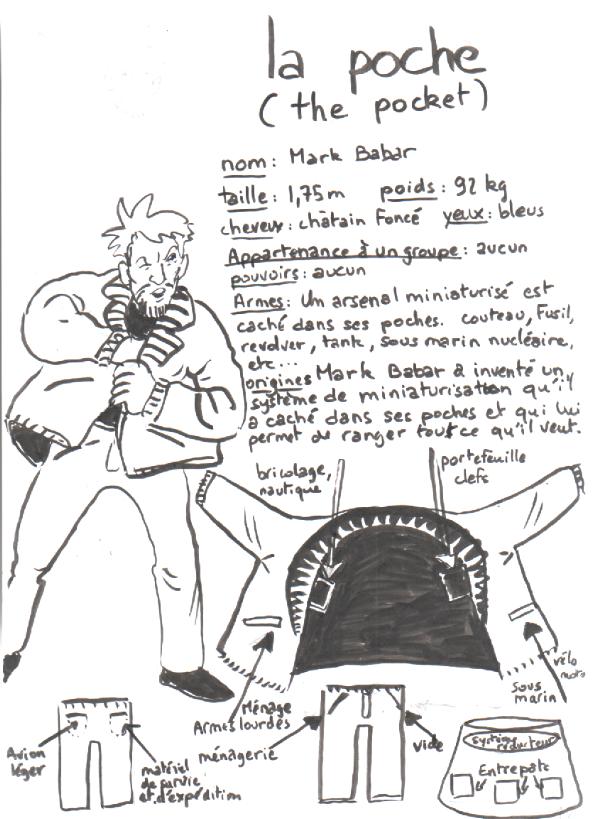 la poche
(the pocket)
nom: Mark Babar
taille: 1,75m poids: 92 kg
cheveux: châtain Foncé yeux: bleus
Appartenance à un groupe: aucun
pouvoirs: aucun
Armes: Um arsenal miniaturisé est
caché dans ses poches. couteau, Fusil,
revolver, tank, sous marin nucléaire,
etc...
origines Mark Babar a inventé un
système de miniaturisation qu'il
a caché dans ses poches et qui lui
permet de ranger tout ce qu'il veut.
bricolage,
nautique
portefeuille
clefs
Ménage
Armes lourdes
vélo
moto
sous
marin
Avion
léger
matériel
de survie
et d'expédition
ménagerie
vide
système
réducteur
Entrepôts